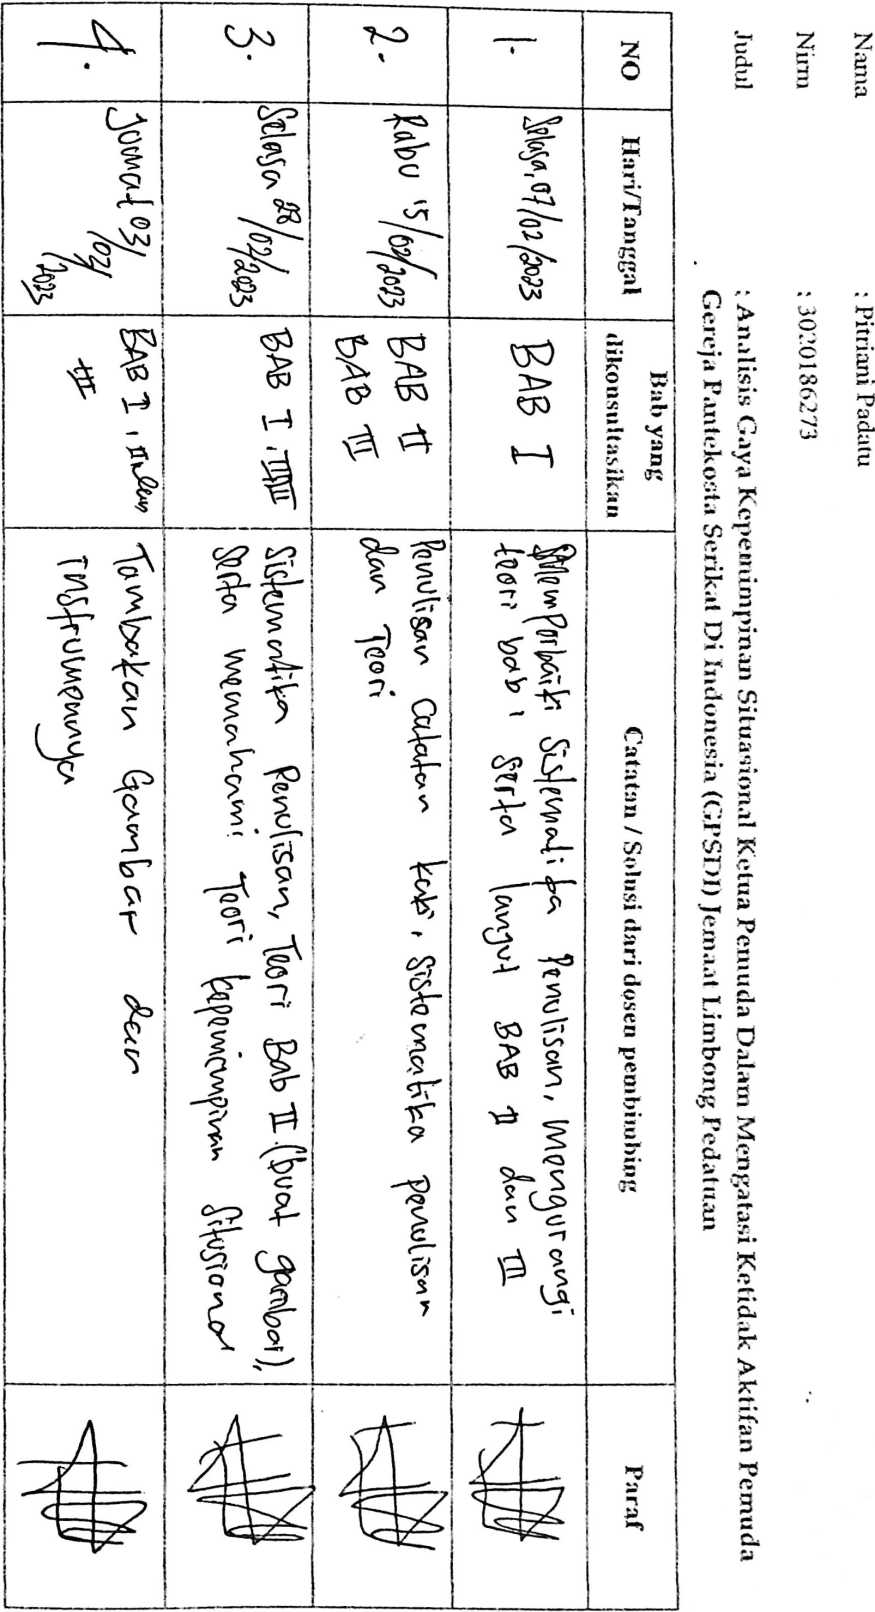 Nama : Pitriani Padatu
Nirm : 3020186273
Judul : Analisis Gaya Kepemimpinan Situasional Ketua Pemuda Dalam Mengatasi Ketidak Aktifan Pemuda
Gereja Pantekosta Serikat Di Indonesia (GPSDI) Jemaat Limbong Pedatuan
NO Hari/Tanggal Bab yang dikonsultasikan Catatan / Solusi dari dosen pembimbing Paraf
1. Selasa, 07/02/2023 BAB I Memperbaiki Sistematika Penulisan, Mengurangi
teori bab 1 serta lanjut BAB II dan III
2. Rabu 15/02/2023 BAB II Penulisan Catatan kaki, sistematika penulisan
BAB III dan Teori
3. Selasa 28/02/2023 BAB I, II, III Sistematika Penulisan, Teori Bab II (buat gambar),
serta memahami Teori kepemimpinan Situsional
4. Jumat 03/03/2023 BAB I, II dan Tambakan Gambar dan
III instrumennya